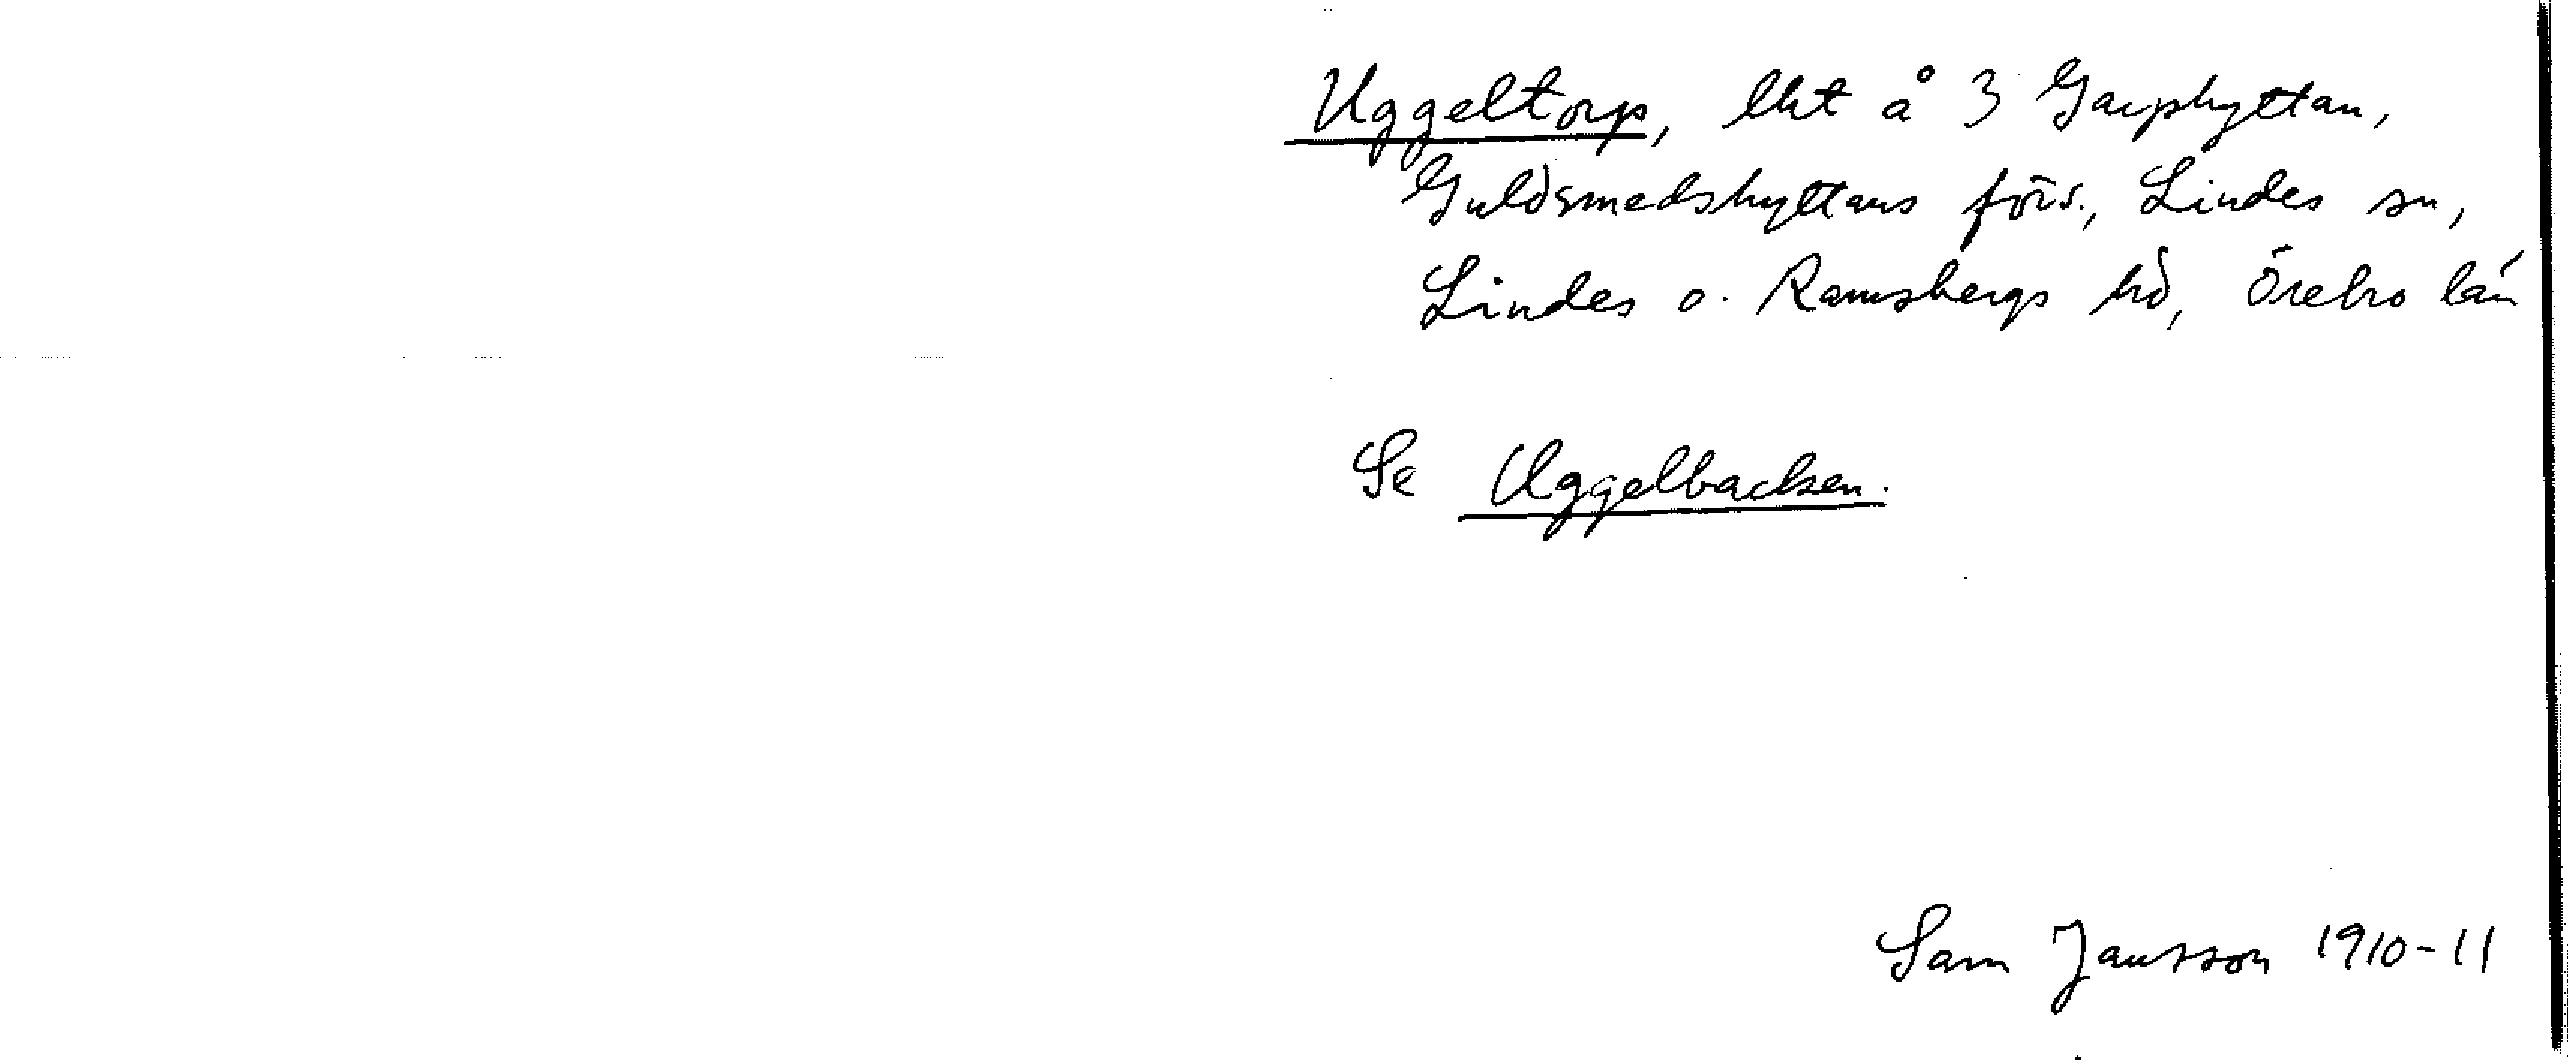 Uggeltorp, lht å 3 Garphyttan,
Guldsmedshyttans förs., Lindes sn,
Lindes o. Ramsbergs hd, Örebro län
Se Uggelbacken.
Sam Jansson 1910-11